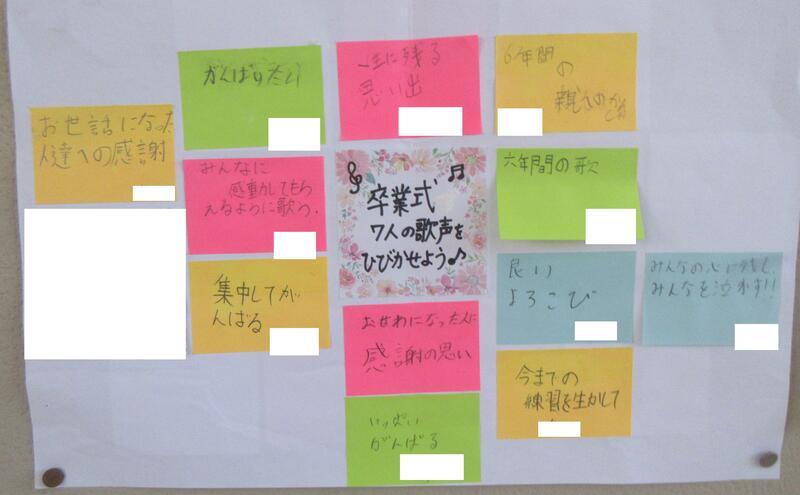 お世話になった
人達への感謝
がんばりたい
みんなに
感動してもら
えるように歌う.
集中してが
んばる
一生に残る
思い出
卒業式
7人の歌声を
ひびかせよう♪
おせわになった人に
感謝の思い
いっぱい
がんばる
6年間
の
六年間の歌
良い
よろこび
今までの
練習を生かして
みんなの心に残し
みんなを泣かす!!